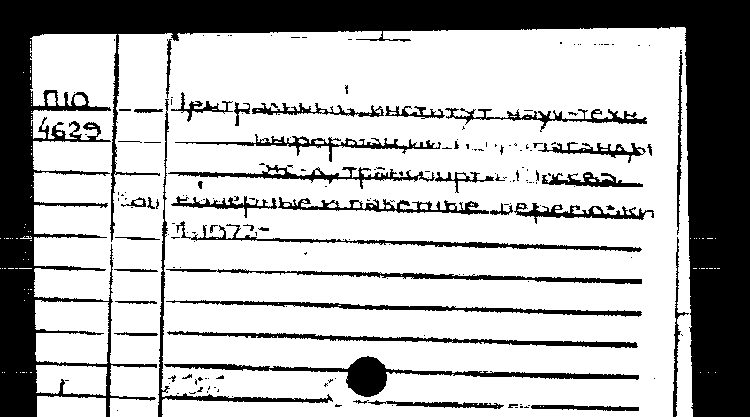 П10
4629
Центральный институт науч-техн.
информации и пропаганды
ж.-д. транспорт. Москва.
Контейнерные и пакетные перевозки
1,1973-